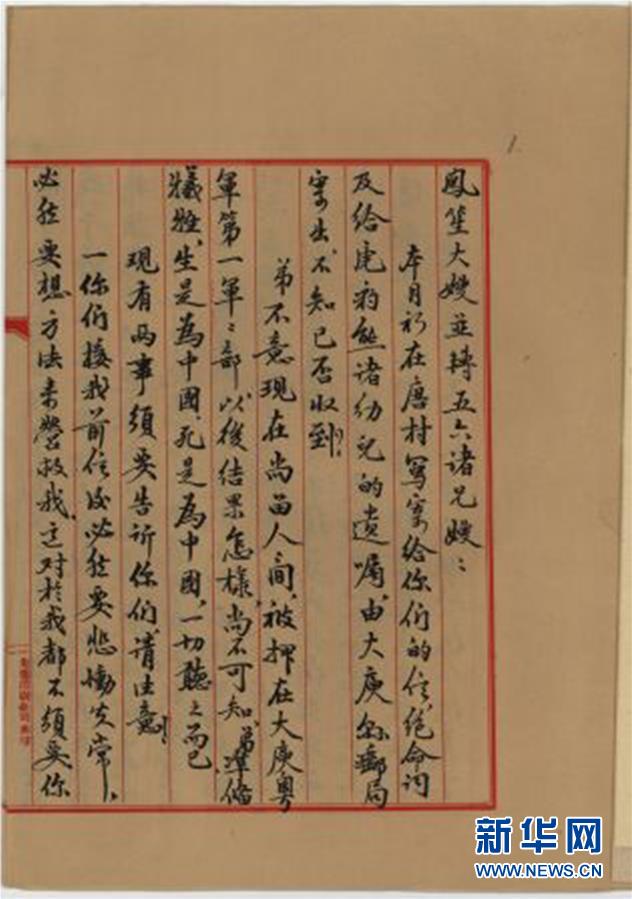 1.
鳳笙大嫂並轉五六諸兄嫂：
本月初在唐村寫寄給你們的信、絕命詞
及給虎豹熊諸幼兒的遺囑、由大庾縣郵局
寄出、不知已否收到？
弟不意現在尚留人間、被押在大庾粵
軍第一軍軍部、以後結果怎樣、尚不可知、弟準備
犧牲、生是為中國、死是為中國、一切聽之而已
現有兩事須要告訴你們、請注意！
一你們接我前信後必然要悲慟失常、
必然要想方法來營救我、這對於我都不須要你
新华网
WWW.NEWS.CN